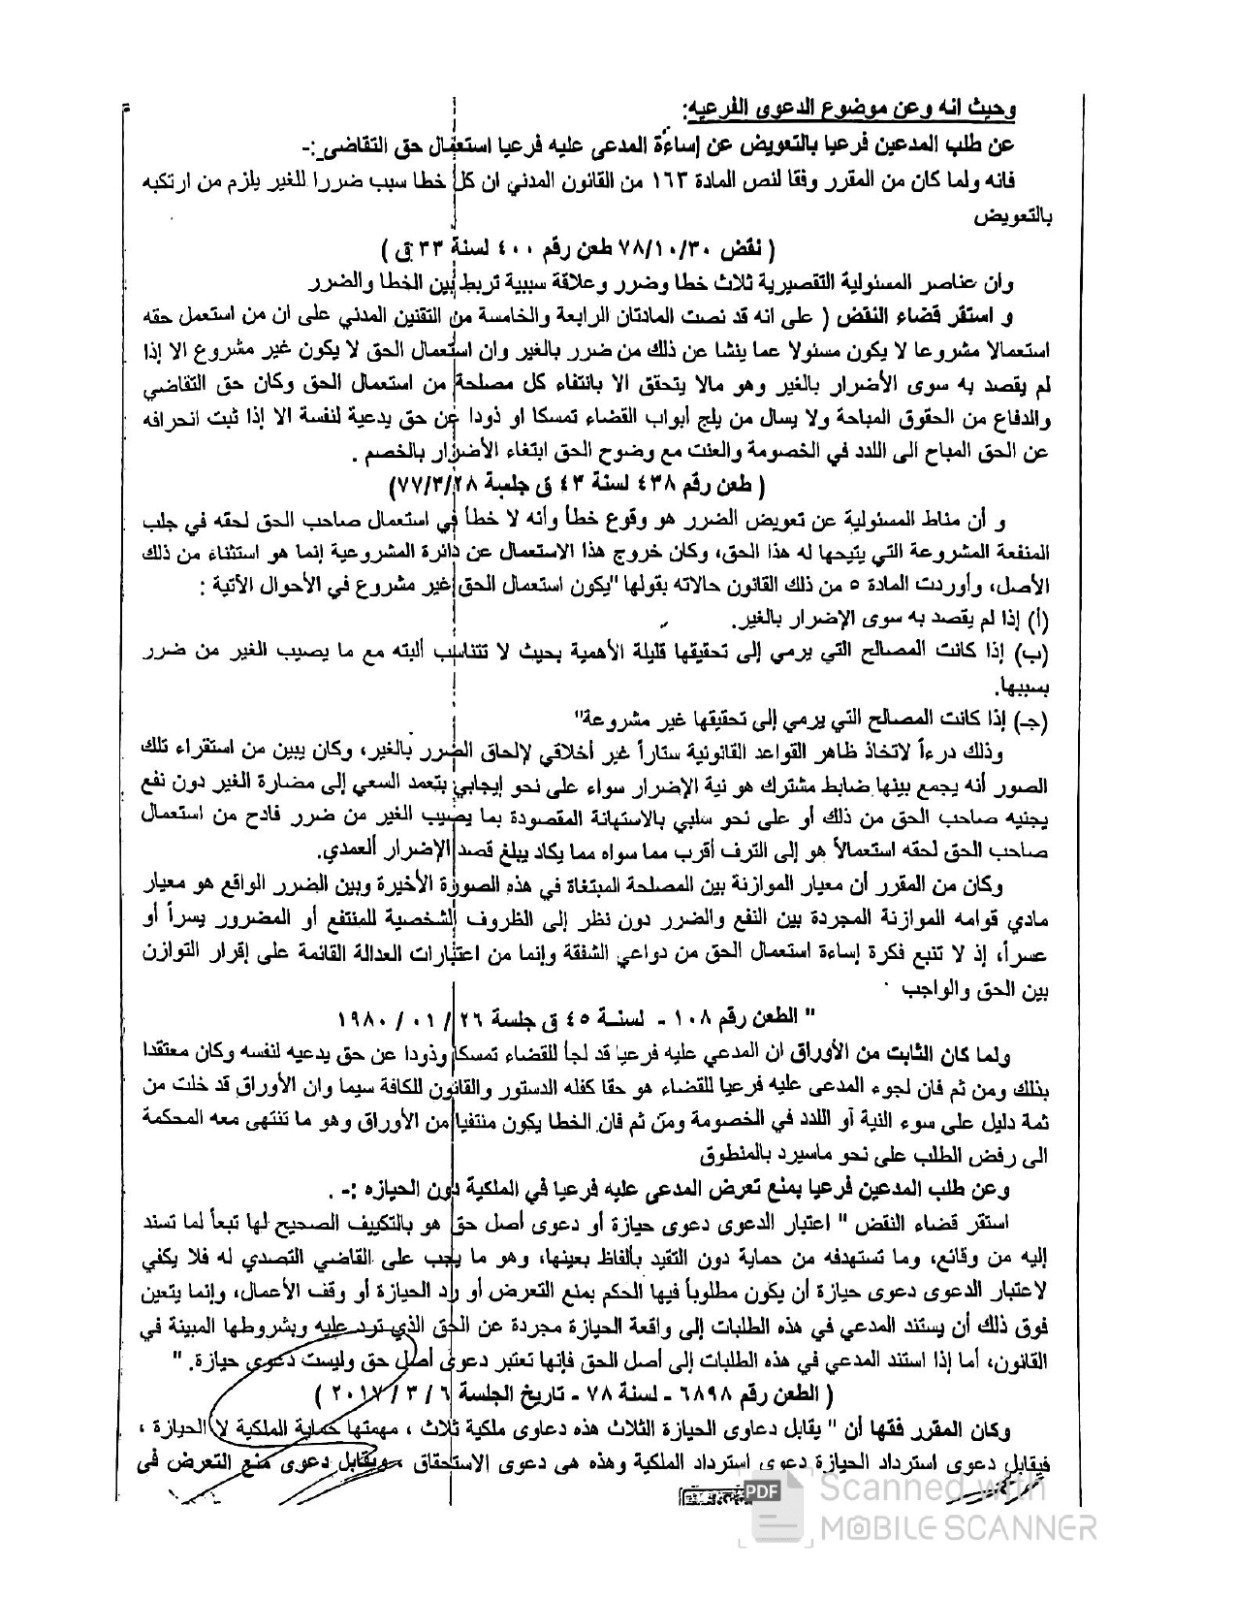 وحيث انه وعن موضوع الدعوى الفرعيه:
عن طلب المدعين فرعيا بالتعويض عن إساءة المدعى عليه فرعيا استعمال حق التقاضى :-
فانه ولما كان من المقرر وفقا لنص المادة ١٦٣ من القانون المدني ان كل خطا سبب ضررا للغير يلزم من ارتكبه
بالتعويض
( نقض ٧٨/١٠/٣٠ طعن رقم ٤٠٠ لسنة ٣٣ ق )
وان عناصر المسئولية التقصيرية ثلاث خطا وضرر وعلاقة سببية تربط بين الخطا والضرر
و استقر قضاء النقض ( على انه قد نصت المادتان الرابعة والخامسة من التقنين المدني على ان من استعمل حقه
استعمالا مشروعا لا يكون مسئولا عما ينشا عن ذلك من ضرر بالغير وان استعمال الحق لا يكون غير مشروع الا إذا
لم يقصد به سوى الأضرار بالغير وهو مالا يتحقق الا بانتفاء كل مصلحة من استعمال الحق وكان حق التقاضي
والدفاع من الحقوق المباحة ولا يسال من يلج أبواب القضاء تمسكا او ذودا عن حق يدعية لنفسة الا إذا ثبت انحرافه
عن الحق المباح الى اللدد في الخصومة والعنت مع وضوح الحق ابتغاء الأضرار بالخصم .
( طعن رقم ٤٣٨ لسنة ٤٣ ق جلسة ٧٧/٣/٢٨)
و أن مناط المسئولية عن تعويض الضرر هو وقوع خطأ وأنه لا خطأ في استعمال صاحب الحق لحقه في جلب
المنفعة المشروعة التي يتيحها له هذا الحق، وكان خروج هذا الاستعمال عن دائرة المشروعية إنما هو استثناء من ذلك
الأصل، وأوردت المادة ٥ من ذلك القانون حالاته بقولها "يكون استعمال الحق غير مشروع في الأحوال الآتية :
(أ) إذا لم يقصد به سوى الإضرار بالغير.
(ب) إذا كانت المصالح التي يرمي إلى تحقيقها قليلة الأهمية بحيث لا تتناسب ألبته مع ما يصيب الغير من ضرر
بسببها.
(جـ) إذا كانت المصالح التي يرمي إلى تحقيقها غير مشروعة"
وذلك درءاً لاتخاذ ظاهر القواعد القانونية ستاراً غير أخلاقي لإلحاق الضرر بالغير، وكان يبين من استقراء تلك
الصور أنه يجمع بينها ضابط مشترك هو نية الإضرار سواء على نحو إيجابي بتعمد السعي إلى مضارة الغير دون نفع
يجنيه صاحب الحق من ذلك أو على نحو سلبي بالاستهانة المقصودة بما يصيب الغير من ضرر فادح من استعمال
صاحب الحق لحقه استعمالاً هو إلى الترف أقرب مما سواه مما يكاد يبلغ قصد الإضرار العمدي.
وكان من المقرر أن معيار الموازنة بين المصلحة المبتغاة في هذه الصورة الأخيرة وبين الضرر الواقع هو معيار
مادي قوامه الموازنة المجردة بين النفع والضرر دون نظر إلى الظروف الشخصية للمنتفع أو المضرور يسراً أو
عسراً، إذ لا تنبع فكرة إساءة استعمال الحق من دواعي الشفقة وإنما من اعتبارات العدالة القائمة على إقرار التوازن
بين الحق والواجب
" الطعن رقم ١٠٨ - لسنــة ٤٥ ق جلسة ٢٦ / ٠١ / ١٩٨٠
ولما كان الثابت من الأوراق ان المدعي عليه فرعيا قد لجأ للقضاء تمسكا وذودا عن حق يدعيه لنفسه وكان معتقدا
بذلك ومن ثم فان لجوء المدعى عليه فرعيا للقضاء هو حقا كفله الدستور والقانون للكافة سيما وان الأوراق قد خلت من
ثمة دليل على سوء النية أو اللدد في الخصومة ومن ثم فان الخطا يكون منتفيا من الأوراق وهو ما تنتهى معه المحكمة
الى رفض الطلب على نحو ماسيرد بالمنطوق
وعن طلب المدعين فرعيا بمنع تعرض المدعى عليه فرعيا في الملكية دون الحيازه :- .
استقر قضاء النقض " اعتبار الدعوى دعوى حيازة أو دعوى أصل حق هو بالتكييف الصحيح لها تبعاً لما تسند
إليه من وقائع، وما تستهدفه من حماية دون التقيد بألفاظ بعينها، وهو ما يجب على القاضي التصدي له فلا يكفي
لاعتبار الدعوى دعوى حيازة أن يكون مطلوباً فيها الحكم بمنع التعرض أو رد الحيازة أو وقف الأعمال، وإنما يتعين
فوق ذلك أن يستند المدعي في هذه الطلبات إلى واقعة الحيازة مجردة عن الحق الذي ترد عليه وبشروطها المبينة في
القانون، أما إذا استند المدعي في هذه الطلبات إلى أصل الحق فإنها تعتبر دعوى أصل حق وليست دعوى حيازة. "
( الطعن رقم ٦٨٩٨ - لسنة ٧٨ - تاريخ الجلسة ٦ / ٣ / ٢٠١٧ )
وكان المقرر فقها أن " يقابل دعاوى الحيازة الثلاث هذه دعاوى ملكية ثلاث ، مهمتها حماية الملكية لا الحيازة ،
فيقابل دعوى استرداد الحيازة دعوى استرداد الملكية وهذه هى دعوى الاستحقاق ، ويقابل دعوى منع التعرض فى
PDF Scanned with
MOBILE SCANNER